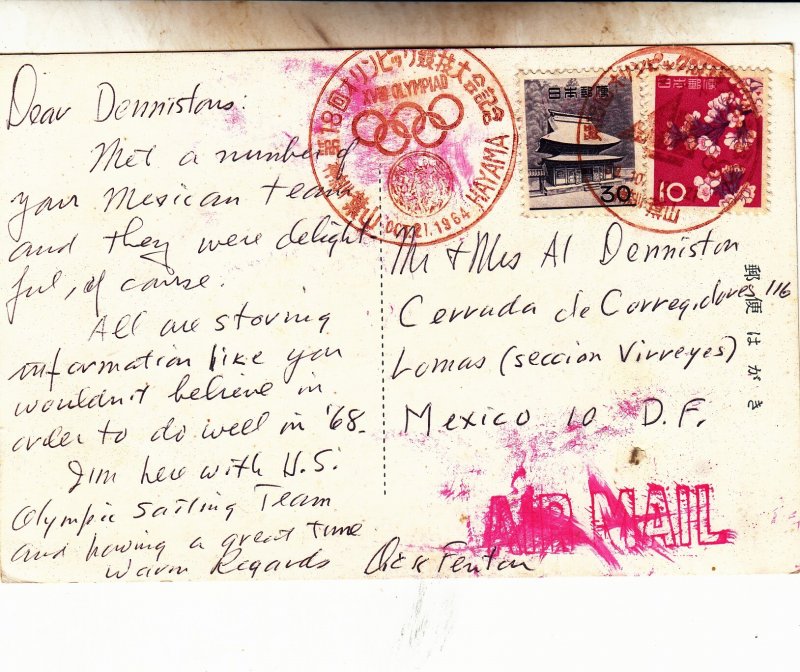 Dear Dennistons:
Met a number of
your Mexican team
and they were delight
ful, of course.
All are storing
information like you
wouldn't believe in
order to do well in '68.
I'm here with U.S.
Olympic Sailing Team
and having a great time
Warm Regards Dick Fenton
第18回オリンピック競技大会記念
XVIII OLYMPIAD
神奈川・葉山
OCT.21.1964
HAYAMA
日本郵便
30
日本郵便
10
Mr & Mrs Al Denniston
Cerrada de Corregidores 116
Lomas (seccion Virreyes)
Mexico 10 D.F.
郵便はがき
AIR MAIL